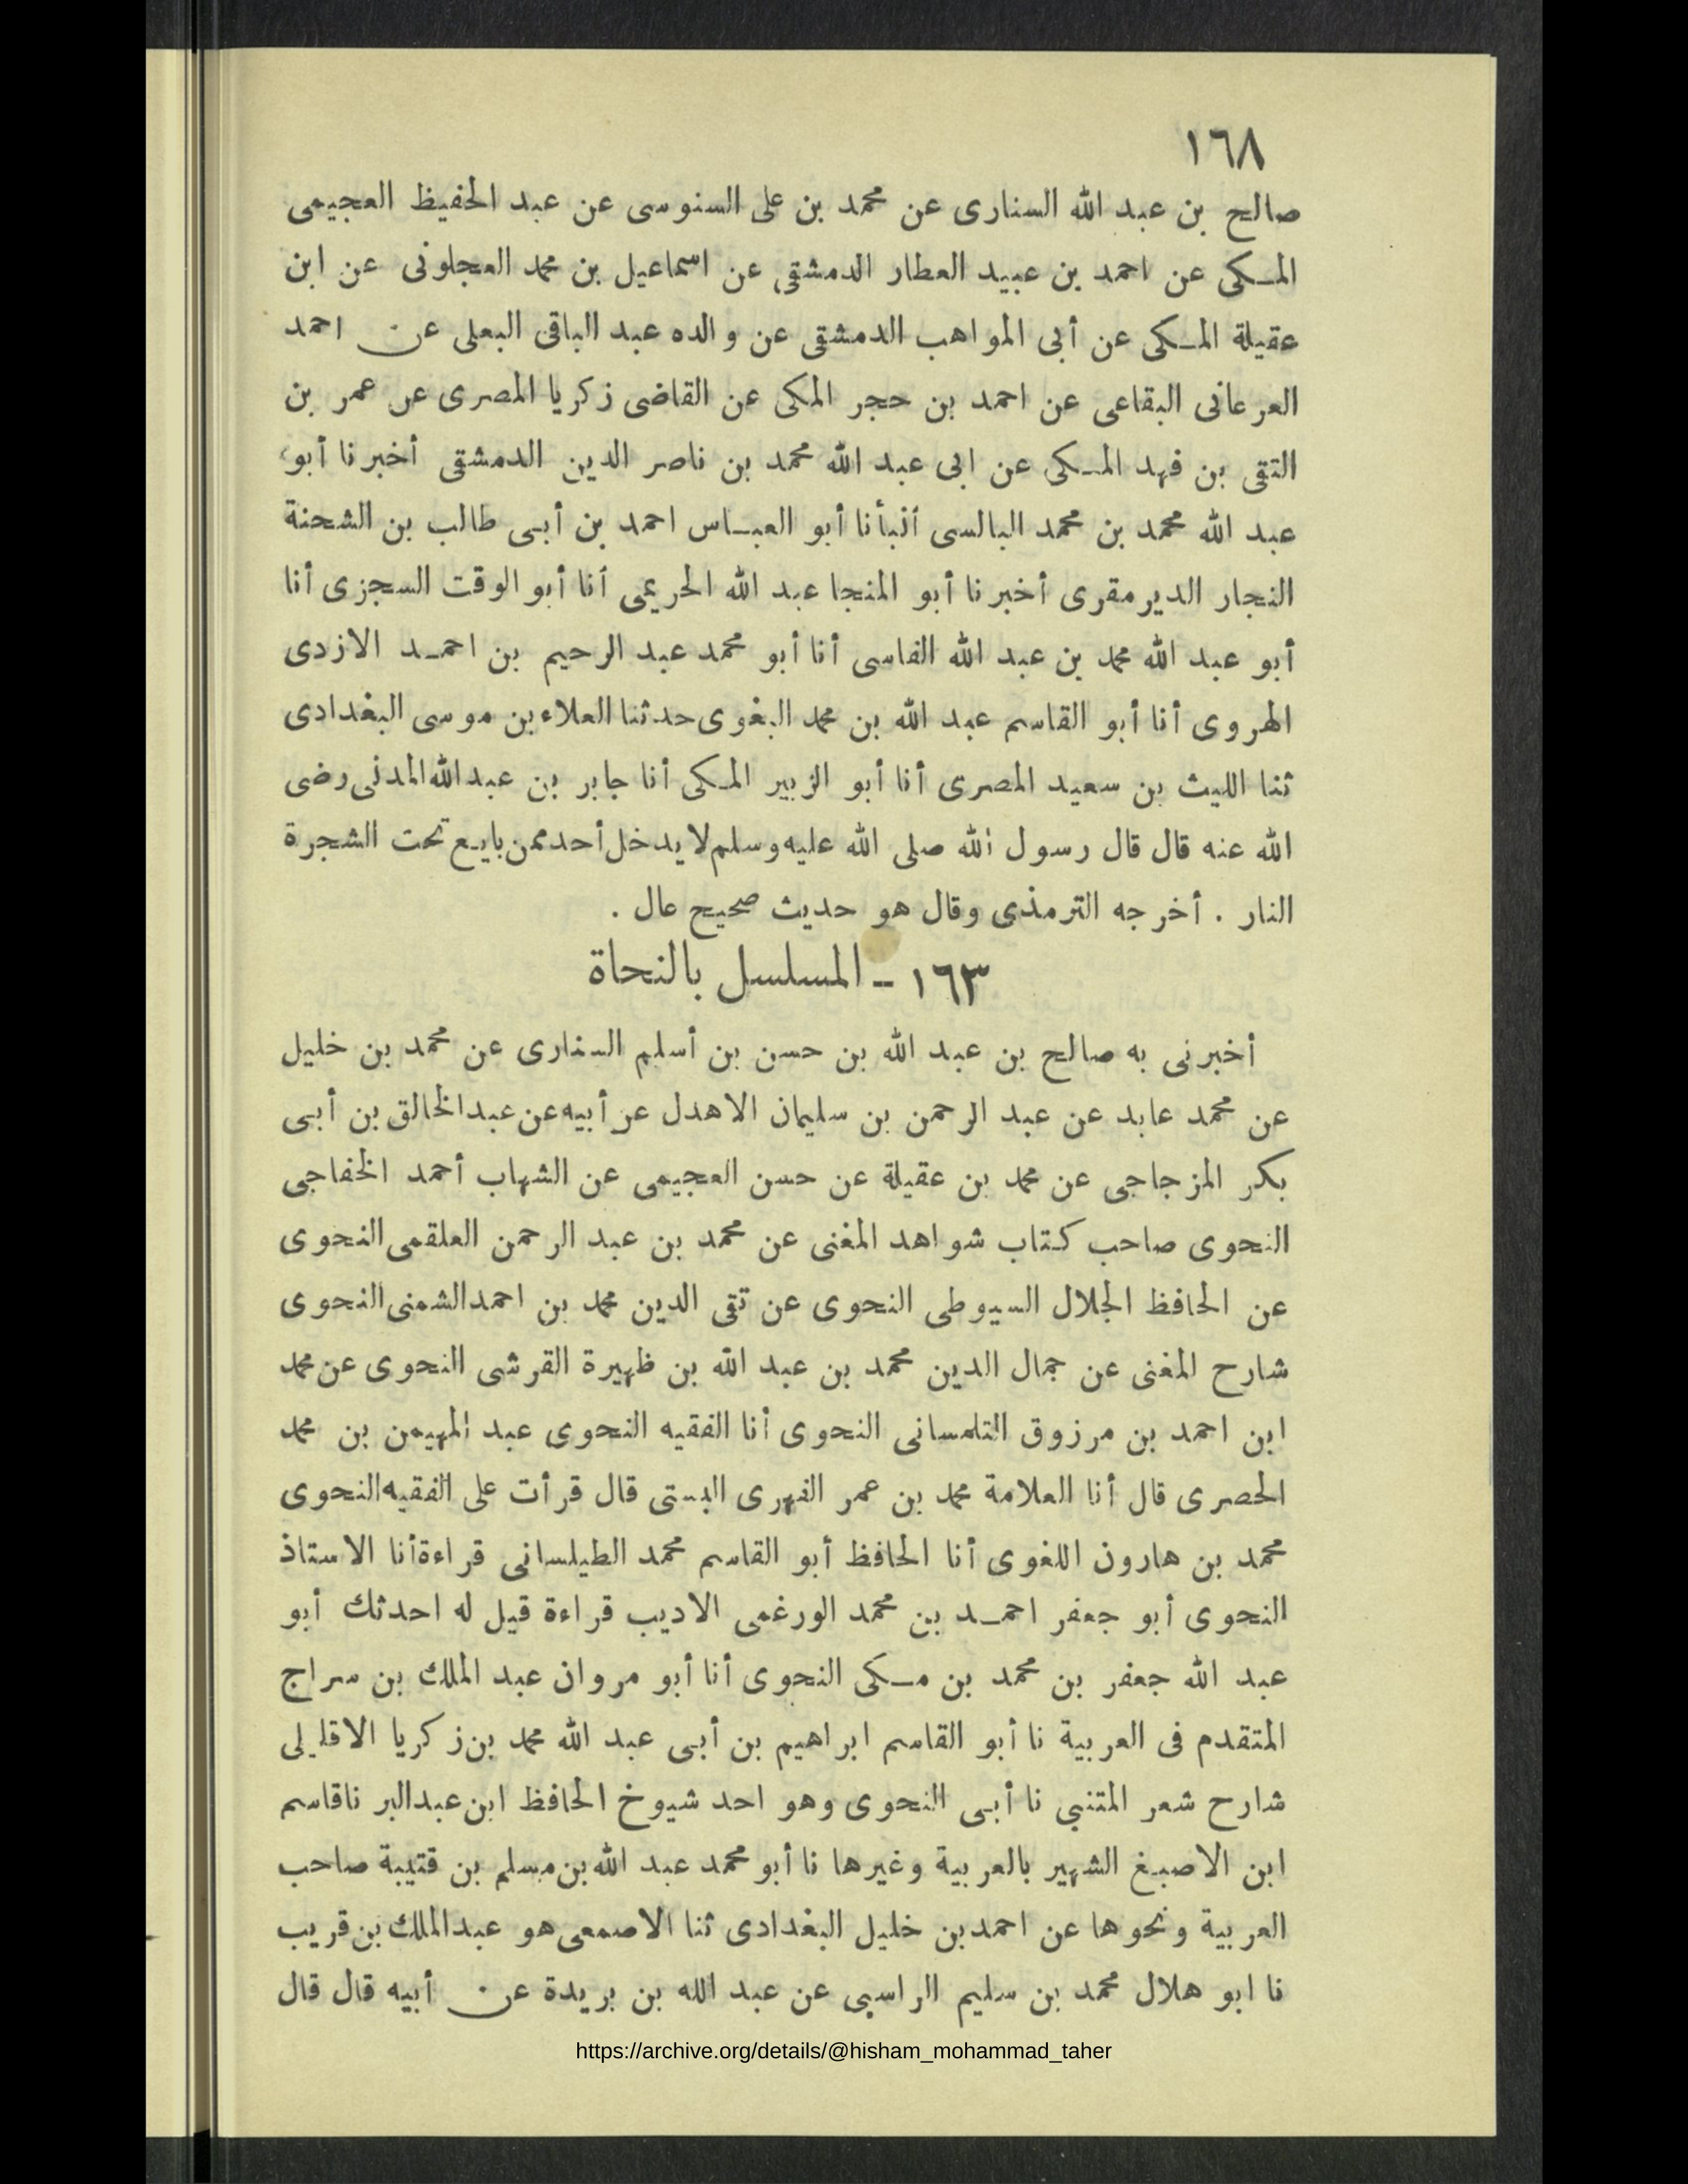 ١٦٨
صالح بن عبد الله السنارى عن محمد بن على السنوسى عن عبد الحفيظ العجيمى
المكى عن احمد بن عبيد العطار الدمشقى عن اسماعيل بن محمد العجلونى عن ابن
عقيلة المكى عن أبى المواهب الدمشقى عن والده عبد الباقى البعلى عن احمد
العرعانى البقاعى عن احمد بن حجر المكى عن القاضى زكريا المصرى عن عمر بن
التقى بن فهد المكى عن ابى عبد الله محمد بن ناصر الدين الدمشقى أخبرنا أبو
عبد الله محمد بن محمد البالسى أنبأنا أبو العباس احمد بن أبى طالب بن الشحنة
النجار الديرمقرى أخبرنا أبو المنجا عبد الله الحريمى أنا أبو الوقت السجزى أنا
أبو عبد الله محمد بن عبد الله الفاسى أنا أبو محمد عبد الرحيم بن احمد الازدى
الهروى أنا أبو القاسم عبد الله بن محمد البغوى حدثنا العلاء بن موسى البغدادى
ثنا الليث بن سعيد المصرى أنا أبو الزبير المكى أنا جابر بن عبد الله المدنى رضى
الله عنه قال قال رسول الله صلى الله عليه وسلم لا يدخل أحد ممن بايع تحت الشجرة
النار . أخرجه الترمذى وقال هو حديث صحيح عال .
١٦٣ - المسلسل بالنحاة
أخبرنى به صالح بن عبد الله بن حسن بن أسلم السنارى عن محمد بن خليل
عن محمد عابد عن عبد الرحمن بن سليمان الاهدل عن أبيه عن عبد الخالق بن أبى
بكر المزجاجى عن محمد بن عقيلة عن حسن العجيمى عن الشهاب أحمد الخفاجى
النحوى صاحب كتاب شواهد المغنى عن محمد بن عبد الرحمن العلقمى النحوى
عن الحافظ الجلال السيوطى النحوى عن تقى الدين محمد بن احمد الشمنى النحوى
شارح المغنى عن جمال الدين محمد بن عبد الله بن ظهيرة القرشى النحوى عن محمد
ابن احمد بن مرزوق التلمسانى النحوى أنا الفقيه النحوى عبد المهيمن بن محمد
الحصرى قال أنا العلامة محمد بن عمر الفهرى البستى قال قرأت على الفقيه النحوى
محمد بن هارون اللغوى أنا الحافظ أبو القاسم محمد الطيلسانى قراءة أنا الاستاذ
النحوى أبو جعفر احمد بن محمد الورغمى الاديب قراءة قيل له احدثك أبو
عبد الله جعفر بن محمد بن مكى النحوى أنا أبو مروان عبد الملك بن سراج
المتقدم فى العربية نا أبو القاسم ابراهيم بن أبى عبد الله محمد بن زكريا الاقليلى
شارح شعر المتنبى نا أبى النحوى وهو احد شيوخ الحافظ ابن عبد البر نا قاسم
ابن الاصبغ الشهير بالعربية وغيرها نا أبو محمد عبد الله بن مسلم بن قتيبة صاحب
العربية ونحوها عن احمد بن خليل البغدادى ثنا الاصمعى هو عبد الملك بن قريب
نا ابو هلال محمد بن سليم الراسبى عن عبد الله بن بريدة عن أبيه قال قال
https://archive.org/details/@hisham_mohammad_taher